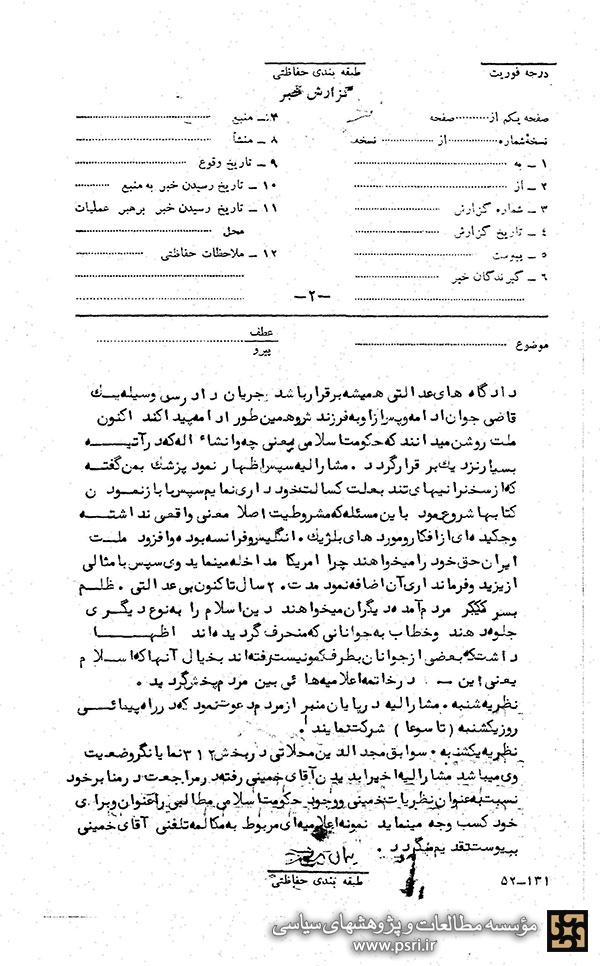 درجه فوریت
طبقه بندی حفاظتی
گزارش خبر
صفحه یکم از ........ صفحه
نسخه شماره ........ از ........ نسخه
۱ ـ به
۲ ـ از
۳ ـ شماره گزارش
۴ ـ تاریخ گزارش
۵ ـ پیوست
۶ ـ گیرندگان خبر
۷ ـ منبع
۸ ـ منشأ
۹ ـ تاریخ وقوع
۱۰ ـ تاریخ رسیدن خبر به منبع
۱۱ ـ تاریخ رسیدن خبر برهبر عملیات
محل
۱۲ ـ ملاحظات حفاظتی
ـ۲ـ
موضوع
عطف
پیرو
دادگاه های عدالتی همیشه برقرار باشد جریان دادرسی وسیله یک
قاضی جوان ادامه وپس ازاو به فرزندش و همین طور ادامه پیدا کند اکنون
ملت روشن میدانند که حکومت اسلامی یعنی چه و انشاء اله که در آتیه
بسیار نزدیک برقرار گردد . مشارالیه سپس اظهار نمود پزشک بمن گفته
که از سخنرانیهای تند بعلت کسالت خودداری نمایم سپس با باز نمودن
کتابها شروع نمود باین مسئله که مشروطیت اصلا معنی واقعی نداشته
وچکیده ای از افکار و موردهای بلژیک . انگلیس و فرانسه بوده و افزود ملت
ایران حق خود را میخواهند چرا امریکا مداخله مینماید وی سپس با مثالی
از یزید و فرمانداری آن اضافه نمود مدت ۲۰ سال تا کنون بی عدالتی . ظلم
بسر مردم آمده دیگران میخواهند دین اسلام را به نوع دیگری
جلوه دهند وخطاب به جوانانی که منحرف گردیده اند اظهار
داشت که بعضی از جوانان بطرف کمونیست رفته اند بخیال آنها که اسلام
یعنی این ــ در خاتمه اعلامیه هائی بین مردم پخش گردید .
نظریه شنبه . مشارالیه در پایان منبر از مردم دعوت نمود که در راه پیمائی
روز یکشنبه ( تاسوعا ) شرکت نمایند .
نظریه یکشنبه . سوابق مجدالدین محلاتی در بخش ۳۱۲ نمایانگر وضعیت
وی میباشد مشارالیه اخیرا بدیدن آقای خمینی رفته و در مراجعت در منابر خود
نسبت به عنوان نظریات خمینی و وجود حکومت اسلامی مطالبی را عنوان و برای
خود کسب وجه مینماید نمونه اعلامیه ای مربوط به مکالمه تلفنی آقای خمینی
بپیوست تقدیم میگردد .
طبقه بندی حفاظتی
۵۲ـ۱۳۱
مؤسسه مطالعات و پژوهشهای سیاسی
www.psri.ir